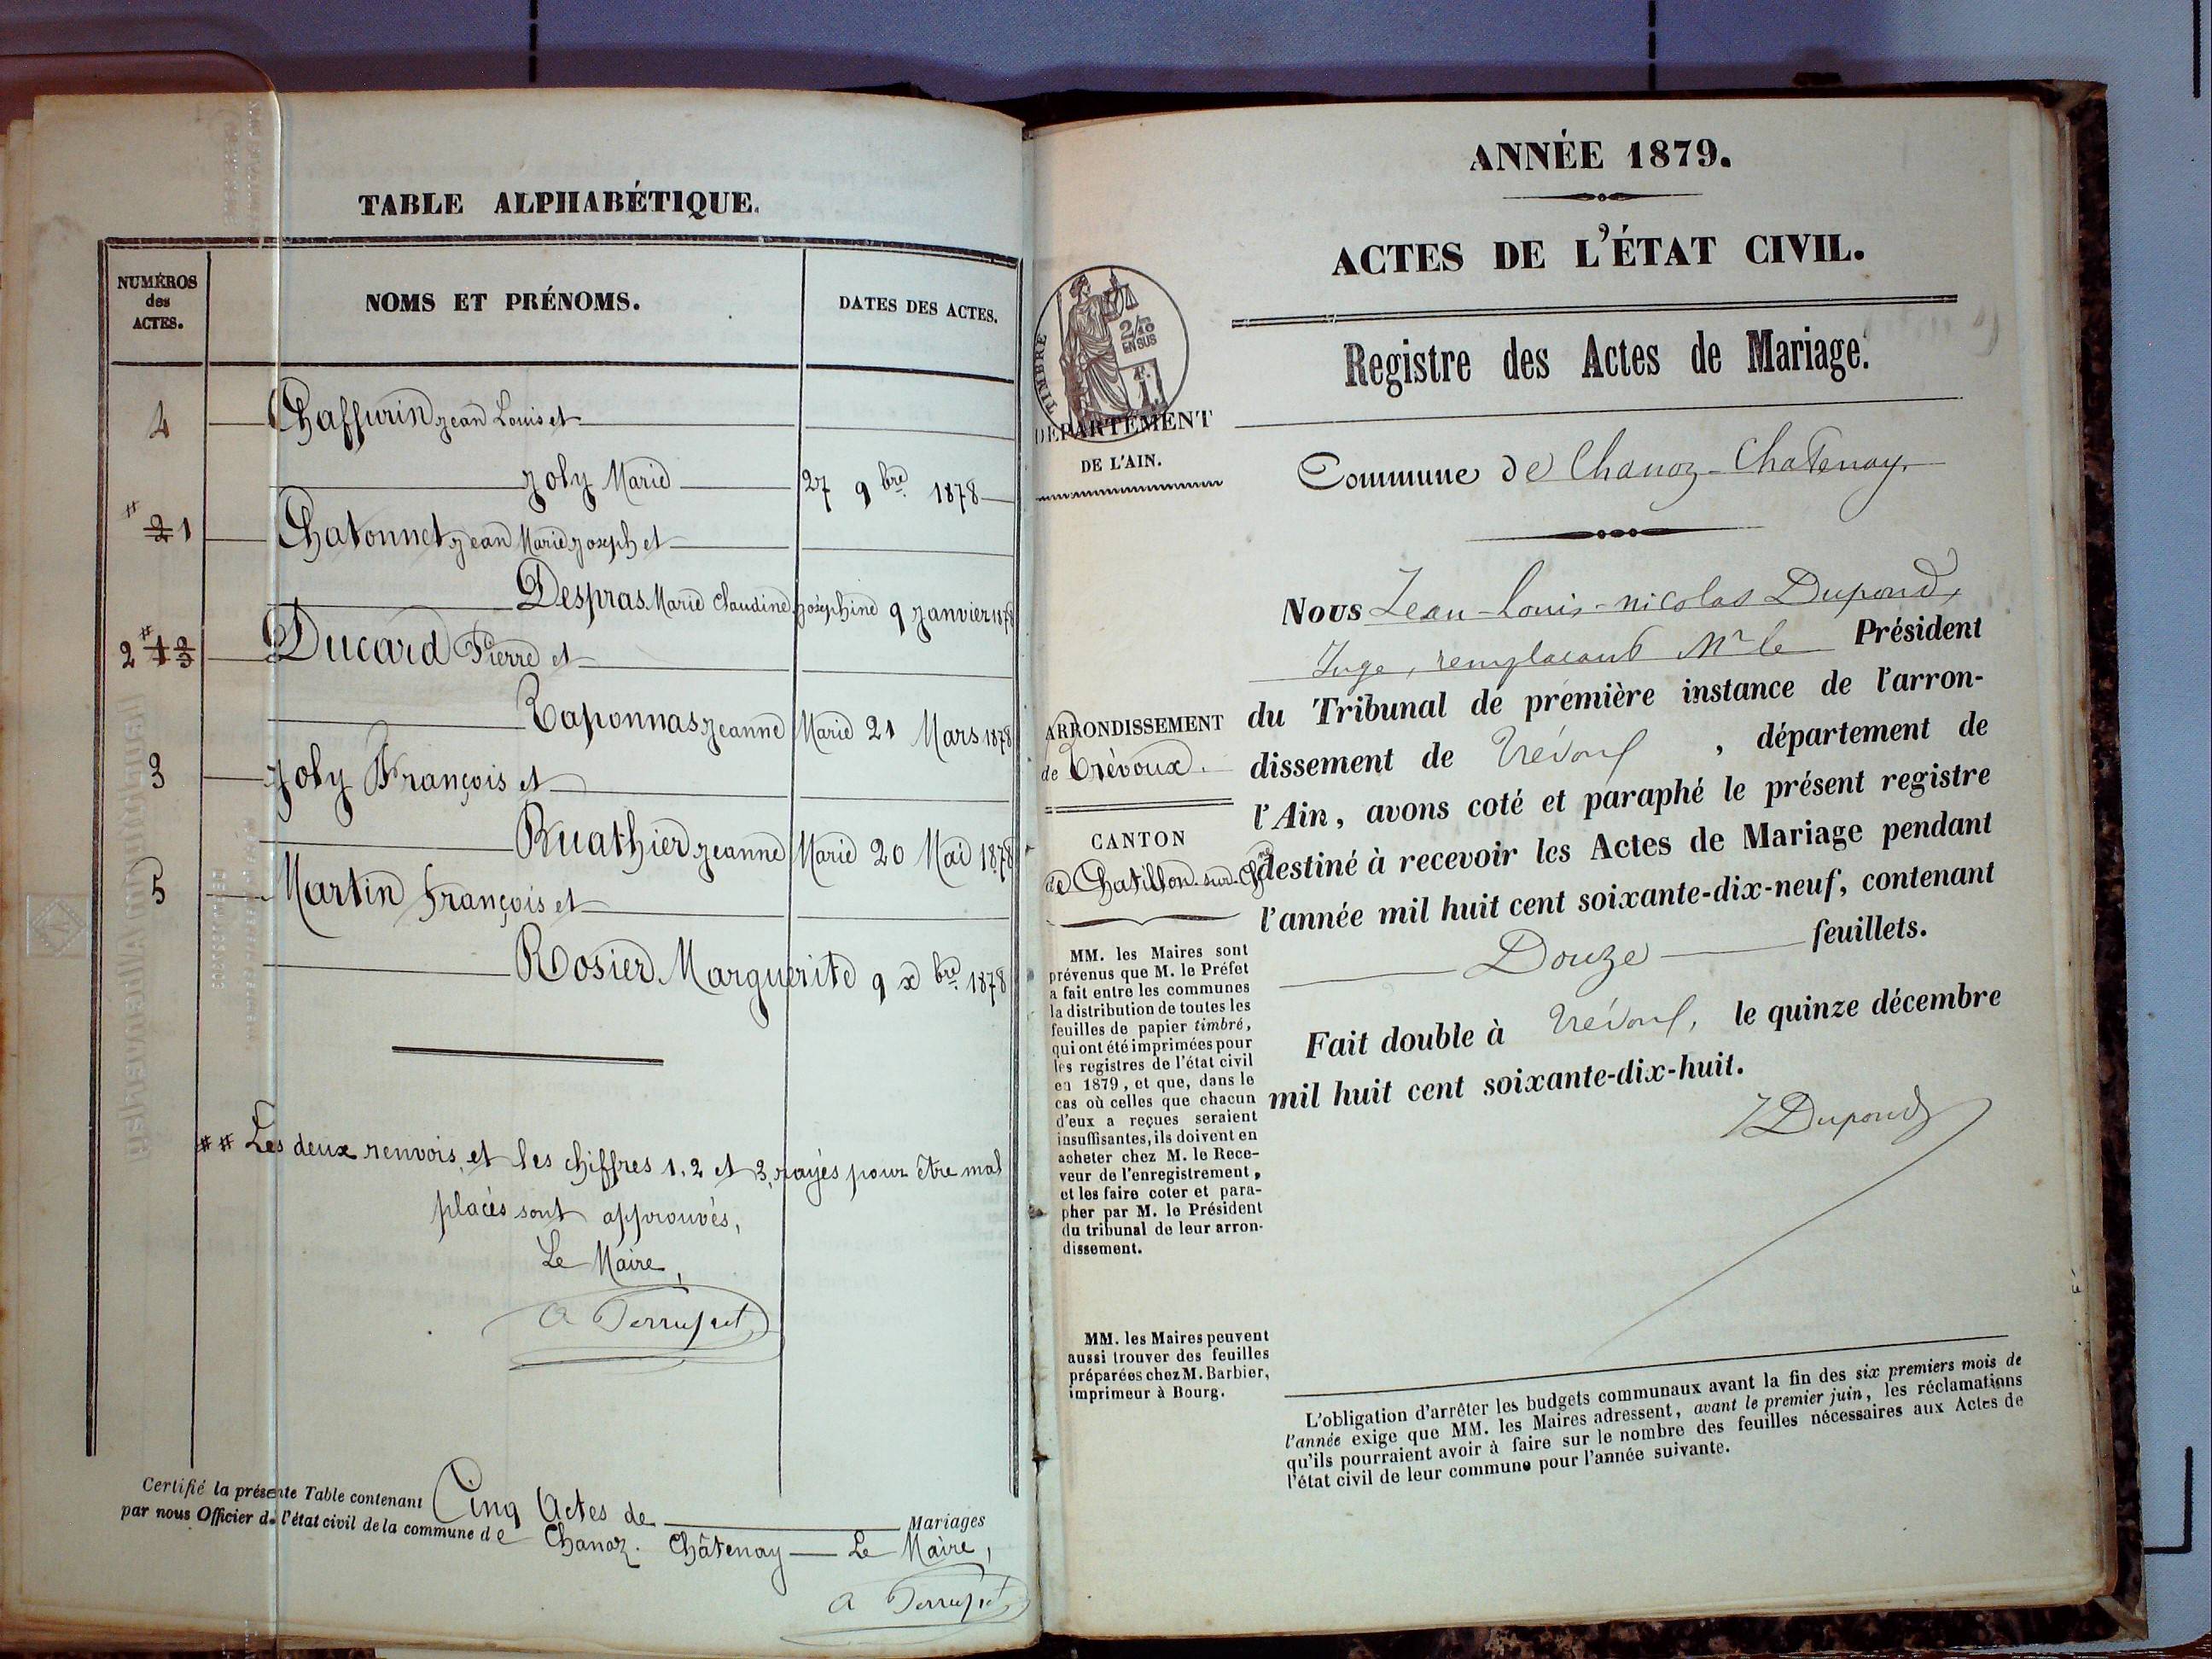 TABLE ALPHABÉTIQUE.
NUMÉROS
des
ACTES.
NOMS ET PRÉNOMS.
DATES DES ACTES.
4 Chaffurin Jean Louis et
Joly Marie 27 9bre 1878
# 2 1 Chatonnet Jean Marie Joseph et
Despras Marie Claudine Joséphine 9 Janvier 1878
2 # 1 2 3 Ducard Pierre et
Taponnas Jeanne Marie 21 Mars 1878
3 Joly François et
Buathier Jeanne Marie 20 Mai 1878
5 Martin François et
Rosier Marguerite 9 xbre 1878
## Les deux renvois, et les chiffres 1, 2 et 3, rayés pour être mal
placés sont approuvés,
Le Maire,
Certifié la présente Table contenant Cinq Actes de Mariages
par nous Officier de l'état civil de la commune de Chanoz. Châtenay Le Maire,
ANNÉE 1879.
ACTES DE L'ÉTAT CIVIL.
Registre des Actes de Mariage.
TIMBRE
2/10
EN SUS
1
DÉPARTEMENT
DE L'AIN.
Commune de Chanoz-Chatenay.
ARRONDISSEMENT
de Trévoux.
CANTON
de Chatillon-sur-Ch
MM. les Maires sont
prévenus que M. le Préfet
a fait entre les communes
la distribution de toutes les
feuilles de papier timbré,
qui ont été imprimées pour
les registres de l'état civil
en 1879, et que, dans le
cas où celles que chacun
d'eux a reçues seraient
insuffisantes, ils doivent en
acheter chez M. le Rece-
veur de l'enregistrement,
et les faire coter et para-
pher par M. le Président
du tribunal de leur arron-
dissement.
MM. les Maires peuvent
aussi trouver des feuilles
préparées chez M. Barbier,
imprimeur à Bourg.
Nous Jean-Louis-nicolas Dupond,
Juge, remplacant Mr le Président
du Tribunal de première instance de l'arron-
dissement de Trévoux, département de
l'Ain, avons coté et paraphé le présent registre
destiné à recevoir les Actes de Mariage pendant
l'année mil huit cent soixante-dix-neuf, contenant
Douze feuillets.
Fait double à Trévoux, le quinze décembre
mil huit cent soixante-dix-huit.
JDupond
L'obligation d'arrêter les budgets communaux avant la fin des six premiers mois de
l'année exige que MM. les Maires adressent, avant le premier juin, les réclamations
qu'ils pourraient avoir à faire sur le nombre des feuilles nécessaires aux Actes de
l'état civil de leur commune pour l'année suivante.